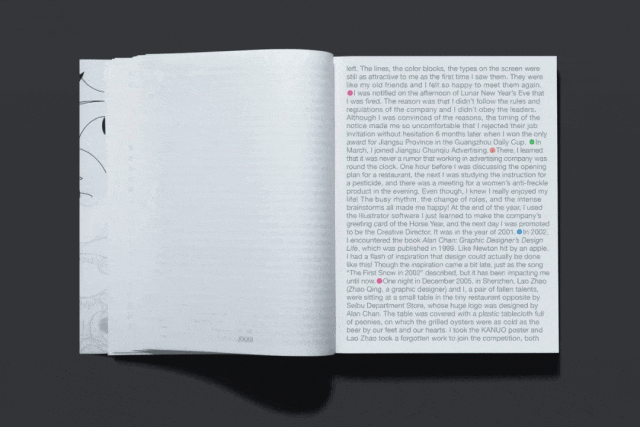 left. The lines, the color blocks, the types on the screen were
still as attractive to me as the first time I saw them. They were
like my old friends and I felt so happy to meet them again.
I was notified on the afternoon of Lunar New Year's Eve that
I was fired. The reason was that I didn't follow the rules and
regulations of the company and I didn't obey the leaders.
Although I was convinced of the reasons, the timing of the
notice made me so uncomfortable that I rejected their job
invitation without hesitation 6 months later when I won the only
award for Jiangsu Province in the Guangzhou Daily Cup. In
March, I joined Jiangsu Chunqiu Advertising. There, I learned
that it was never a rumor that working in advertising company was
round the clock. One hour before I was discussing the opening
plan for a restaurant, the next I was studying the instruction for
a pesticide, and there was a meeting for a women's anti-freckle
product in the evening. Even though, I knew I really enjoyed my
life! The busy rhythm, the change of roles, and the intense
brainstorms all made me happy! At the end of the year, I used
the Illustrator software I just learned to make the company's
greeting card of the Horse Year, and the next day I was promoted
to be the Creative Director. It was in the year of 2001. In 2002,
I encountered the book Alan Chan: Graphic Designer's Design
Life, which was published in 1999. Like Newton hit by an apple,
I had a flash of inspiration that design could actually be done
like this! Though the inspiration came a bit late, just as the song
"The First Snow in 2002" described, but it has been impacting me
until now. One night in December 2005, in Shenzhen, Lao Zhao
(Zhao Qing, a graphic designer) and I, a pair of fallen talents,
were sitting at a small table in the tiny restaurant opposite by
Seibu Department Store, whose huge logo was designed by
Alan Chan. The table was covered with a plastic tablecloth full
of peonies, on which the grilled oysters were as cold as the
beer by our feet and our hearts. I took the KANUO poster and
Lao Zhao took a forgotten work to join the competition, both